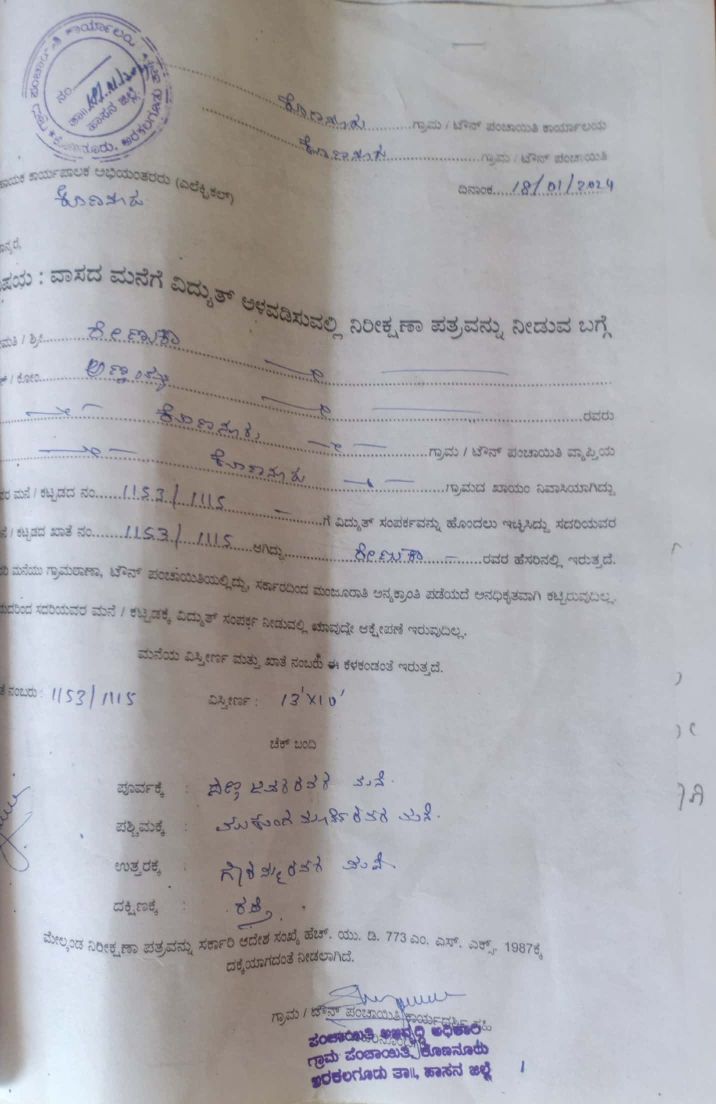 ಕಾರ್ಯಾಲಯ
ನಂ.
ತಾ॥
ಹಾಸನ ಜಿಲ್ಲೆ
ಕೊಣನೂರು ಗ್ರಾಮ / ಟೌನ್ ಪಂಚಾಯಿತಿ ಕಾರ್ಯಾಲಯ
ಕೊಣನೂರು ಗ್ರಾಮ / ಟೌನ್ ಪಂಚಾಯಿತಿ
ಕಾರ್ಯಪಾಲಕ ಅಭಿಯಂತರರು (ಎಲೆಕ್ಟ್ರಿಕಲ್)
ದಿನಾಂಕ 18/01/2024
ಕೊಣನೂರು
: ವಾಸದ ಮನೆಗೆ ವಿದ್ಯುತ್ ಅಳವಡಿಸುವಲ್ಲಿ ನಿರೀಕ್ಷಣಾ ಪತ್ರವನ್ನು ನೀಡುವ ಬಗ್ಗೆ
/ ಶ್ರೀ ರೇಣುಕಾ
/ ಕೋಂ
ರವರು
ಕೊಣನೂರು, ಗ್ರಾಮ / ಟೌನ್ ಪಂಚಾಯಿತಿ ವ್ಯಾಪ್ತಿಯ
ಕೊಣನೂರು ಗ್ರಾಮದ ಖಾಯಂ ನಿವಾಸಿಯಾಗಿದ್ದು
ಮನೆ / ಕಟ್ಟಡದ ನಂ. 1153/1115 ಗೆ ವಿದ್ಯುತ್ ಸಂಪರ್ಕವನ್ನು ಹೊಂದಲು ಇಚ್ಛಿಸಿದ್ದು ಸದರಿಯವರ
/ ಕಟ್ಟಡದ ಖಾತೆ ನಂ. 1153/1115 ಆಗಿದ್ದು ರೇಣುಕಾ ರವರ ಹೆಸರಿನಲ್ಲಿ ಇರುತ್ತದೆ.
ಮನೆಯು ಗ್ರಾಮಠಾಣಾ, ಟೌನ್ ಪಂಚಾಯಿತಿಯಲ್ಲಿದ್ದು, ಸರ್ಕಾರದಿಂದ ಮಂಜೂರಾತಿ ಅನ್ಯಕ್ರಾಂತಿ ಪಡೆಯದೆ ಅನಧಿಕೃತವಾಗಿ ಕಟ್ಟಿರುವುದಿಲ್ಲ.
ಸದರಿಯವರ ಮನೆ / ಕಟ್ಟಡಕ್ಕೆ ವಿದ್ಯುತ್ ಸಂಪರ್ಕ ನೀಡುವಲ್ಲಿ ಯಾವುದೇ ಆಕ್ಷೇಪಣೆ ಇರುವುದಿಲ್ಲ.
ಮನೆಯ ವಿಸ್ತೀರ್ಣ ಮತ್ತು ಖಾತೆ ನಂಬರು ಈ ಕೆಳಕಂಡಂತೆ ಇರುತ್ತದೆ.
ನಂಬರು : 1153/1115 ವಿಸ್ತೀರ್ಣ : 13'X10'
ಚೆಕ್ ಬಂದಿ
ಪೂರ್ವಕ್ಕೆ : ಮನೆ.
ಪಶ್ಚಿಮಕ್ಕೆ : ಮನೆ.
ಉತ್ತರಕ್ಕೆ : ಮನೆ
ದಕ್ಷಿಣಕ್ಕೆ : ರಸ್ತೆ
ಮೇಲ್ಕಂಡ ನಿರೀಕ್ಷಣಾ ಪತ್ರವನ್ನು ಸರ್ಕಾರಿ ಆದೇಶ ಸಂಖ್ಯೆ ಹೆಚ್. ಯು. ಡಿ. 773 ಎಂ. ಎಸ್. ಎಕ್ಸ್. 1987ಕ್ಕೆ
ದಕ್ಕೆಯಾಗದಂತೆ ನೀಡಲಾಗಿದೆ.
ಗ್ರಾಮ / ಟೌನ್ ಪಂಚಾಯಿತಿ ಕಾರ್ಯದರ್ಶಿ ಸಹಿ
ಪಂಚಾಯಿತಿ ಅಭಿವೃದ್ಧಿ ಅಧಿಕಾರಿ
ಗ್ರಾಮ ಪಂಚಾಯಿತಿ, ಕೊಣನೂರು
ಅರಕಲಗೂಡು ತಾ॥, ಹಾಸನ ಜಿಲ್ಲೆ